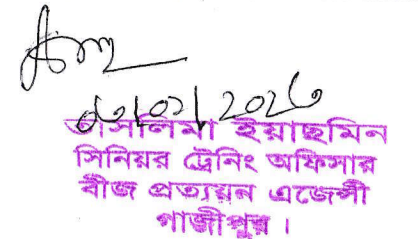 তাসলিমা ইয়াছমিন
সিনিয়র ট্রেনিং অফিসার
বীজ প্রত্যয়ন এজেন্সী
গাজীপুর ।